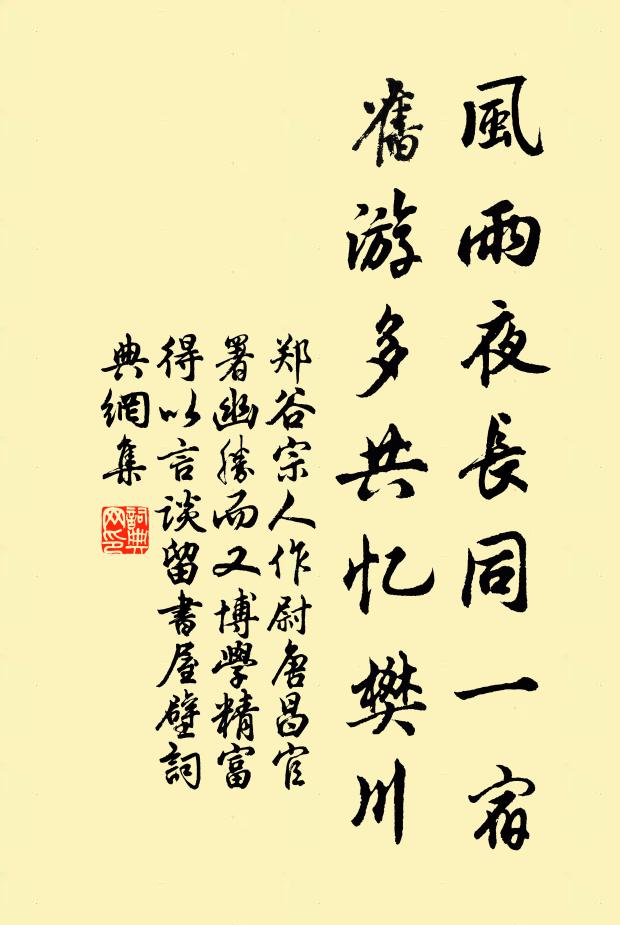 風雨夜長同一宿
舊游多共忆樊川
郑谷宗人作尉唐昌官
署幽勝而又博學精富
得以言谈留書屋壁詞
典網集
詞典
网印